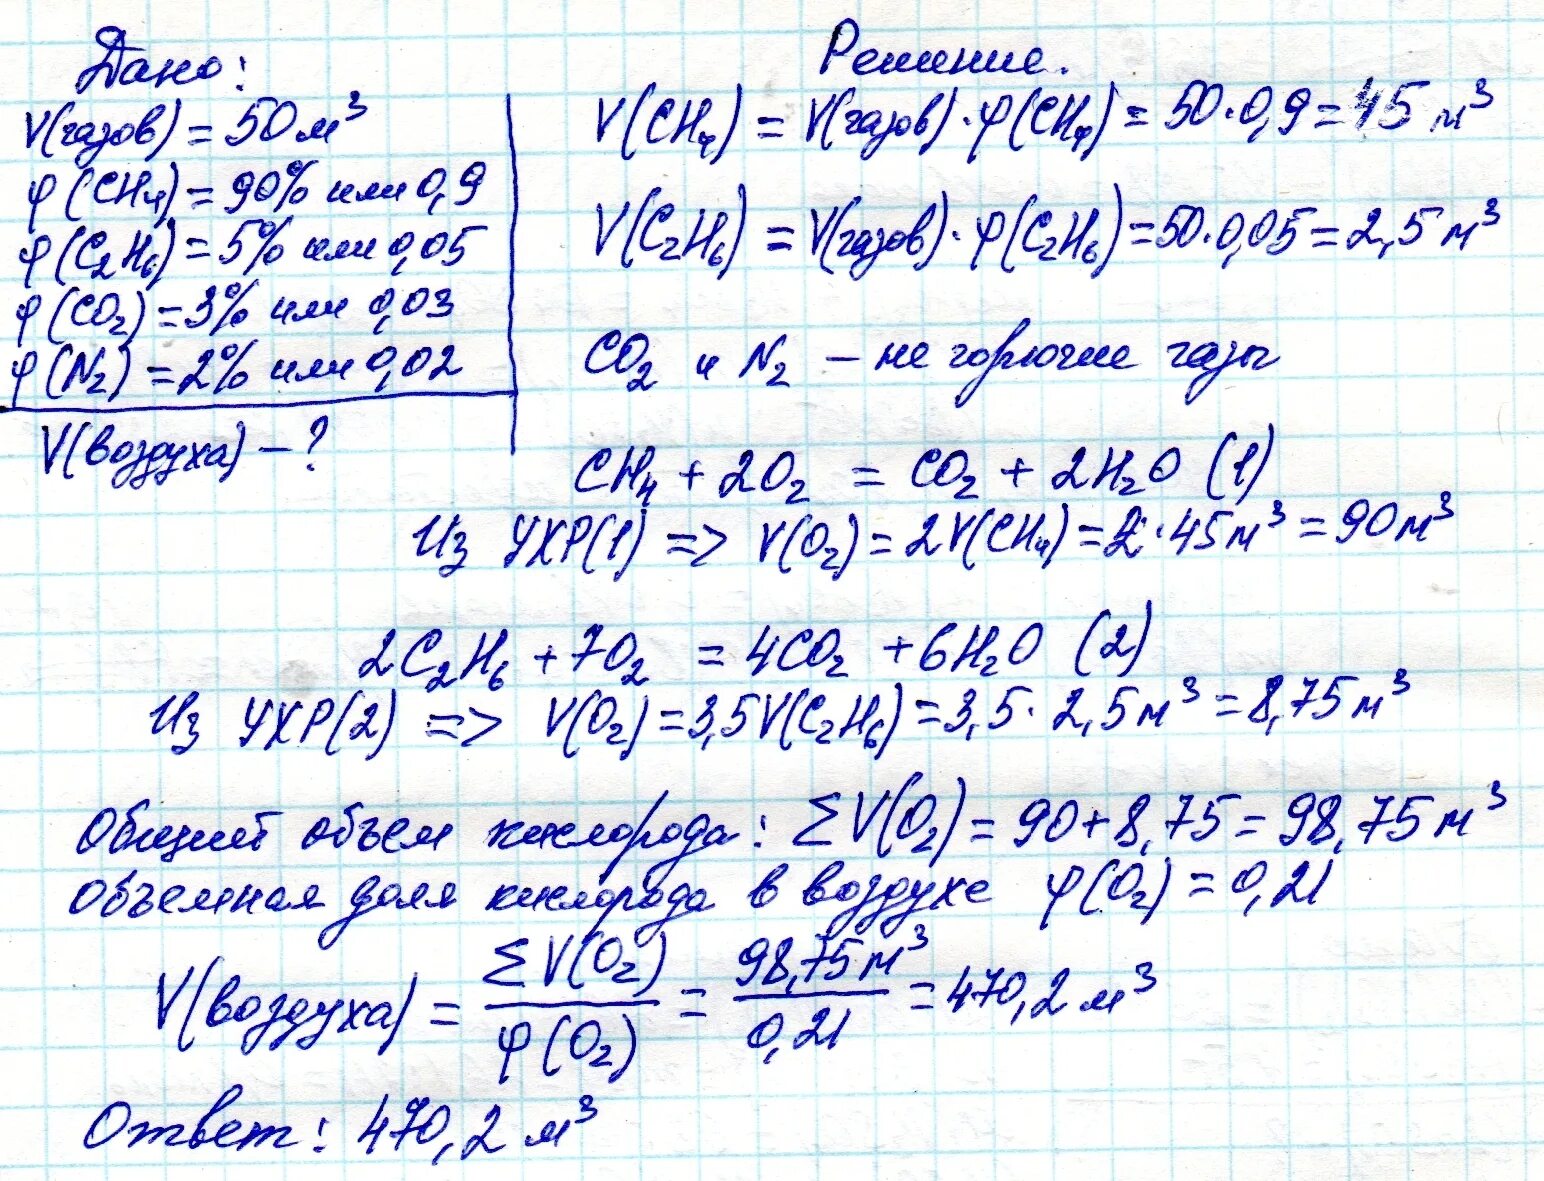 Дано:
V(газов) = 50 м³
φ(CH₄) = 90% или 0,9
φ(C₂H₆) = 5% или 0,05
φ(CO₂) = 3% или 0,03
φ(N₂) = 2% или 0,02
V(воздуха) – ?
Решение.
V(CH₄) = V(газов)·φ(CH₄) = 50·0,9 = 45 м³
V(C₂H₆) = V(газов)·φ(C₂H₆) = 50·0,05 = 2,5 м³
CO₂ и N₂ – не горючие газы
CH₄ + 2O₂ = CO₂ + 2H₂O (1)
Из УХР(1) => V(O₂) = 2V(CH₄) = 2·45 м³ = 90 м³
2C₂H₆ + 7O₂ = 4CO₂ + 6H₂O (2)
Из УХР(2) => V(O₂) = 3,5V(C₂H₆) = 3,5·2,5 м³ = 8,75 м³
Общий объем кислорода: ΣV(O₂) = 90 + 8,75 = 98,75 м³
Объемная доля кислорода в воздухе φ(O₂) = 0,21
V(воздуха) = ΣV(O₂)/φ(O₂) = 98,75 м³/0,21 = 470,2 м³
Ответ: 470,2 м³